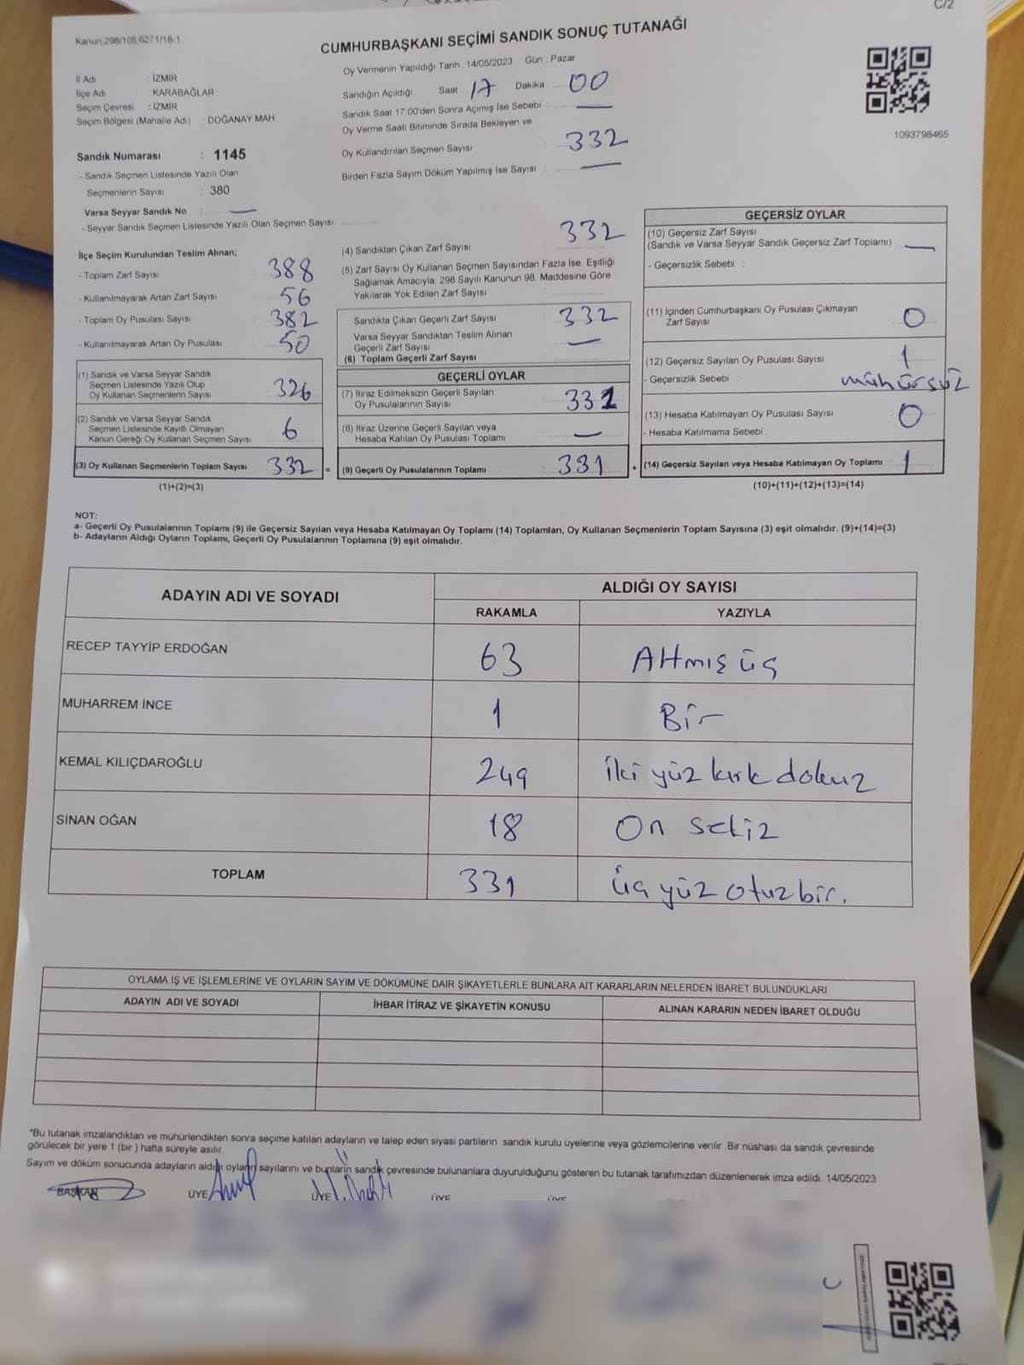 C/2
Kanun:298/105,6271/18-1
CUMHURBAŞKANI SEÇİMİ SANDIK SONUÇ TUTANAĞI
İl Adı : İZMİR
İlçe Adı : KARABAĞLAR
Seçim Çevresi : İZMİR
Seçim Bölgesi (Mahalle Adı) : DOĞANAY MAH.
Sandık Numarası : 1145
- Sandık Seçmen Listesinde Yazılı Olan
Seçmenlerin Sayısı : 380
Varsa Seyyar Sandık No : —
- Seyyar Sandık Seçmen Listesinde Yazılı Olan Seçmen Sayısı
Oy Vermenin Yapıldığı Tarih :14/05/2023 Gün : Pazar
Sandığın Açıldığı Saat 17 Dakika 00
Sandık Saat 17:00'den Sonra Açımış İse Sebebi —
Oy Verme Saati Bitiminde Sırada Bekleyen ve
Oy Kullandırılan Seçmen Sayısı 332
Birden Fazla Sayım Döküm Yapılmış İse Sayısı —
1093798465
İlçe Seçim Kurulundan Teslim Alınan;
- Toplam Zarf Sayısı 388
- Kullanılmayarak Artan Zarf Sayısı 56
- Toplam Oy Pusulası Sayısı 382
- Kullanılmayarak Artan Oy Pusulası 50
(1) Sandık ve Varsa Seyyar Sandık
Seçmen Listesinde Yazılı Olup
Oy Kullanan Seçmenlerin Sayısı 326
(2) Sandık ve Varsa Seyyar Sandık
Seçmen Listesinde Kayıtlı Olmayan
Kanun Gereği Oy Kullanan Seçmen Sayısı 6
(3) Oy Kullanan Seçmenlerin Toplam Sayısı 332 =
(1)+(2)=(3)
(4) Sandıktan Çıkan Zarf Sayısı 332
(5) Zarf Sayısı Oy Kullanan Seçmen Sayısından Fazla İse, Eşitliği
Sağlamak Amacıyla, 298 Sayılı Kanunun 98. Maddesine Göre
Yakılarak Yok Edilen Zarf Sayısı
Sandıkta Çıkan Geçerli Zarf Sayısı 332
Varsa Seyyar Sandıktan Teslim Alınan
Geçerli Zarf Sayısı —
(6) Toplam Geçerli Zarf Sayısı
GEÇERLİ OYLAR
(7) İtiraz Edilmeksizin Geçerli Sayılan
Oy Pusulalarının Sayısı 331
(8) İtiraz Üzerine Geçerli Sayılan veya
Hesaba Katılan Oy Pusulası Toplamı —
(9) Geçerli Oy Pusulalarının Toplamı 331 +
GEÇERSİZ OYLAR
(10) Geçersiz Zarf Sayısı
(Sandık ve Varsa Seyyar Sandık Geçersiz Zarf Toplamı) —
- Geçersizlik Sebebi :
(11) İçinden Cumhurbaşkanı Oy Pusulası Çıkmayan
Zarf Sayısı 0
(12) Geçersiz Sayılan Oy Pusulası Sayısı 1
- Geçersizlik Sebebi mühürsüz
(13) Hesaba Katılmayan Oy Pusulası Sayısı 0
- Hesaba Katılmama Sebebi :
(14) Geçersiz Sayılan veya Hesaba Katılmayan Oy Toplamı 1
(10)+(11)+(12)+(13)=(14)
NOT:
a- Geçerli Oy Pusulalarının Toplamı (9) ile Geçersiz Sayılan veya Hesaba Katılmayan Oy Toplamı (14) Toplamları, Oy Kullanan Seçmenlerin Toplam Sayısına (3) eşit olmalıdır. (9)+(14)=(3)
b- Adayların Aldığı Oyların Toplamı, Geçerli Oy Pusulalarının Toplamına (9) eşit olmalıdır.
ADAYIN ADI VE SOYADI ALDIĞI OY SAYISI
RAKAMLA YAZIYLA
RECEP TAYYİP ERDOĞAN 63 Altmış üç
MUHARREM İNCE 1 Bir
KEMAL KILIÇDAROĞLU 249 iki yüz kırk dokuz
SİNAN OĞAN 18 On sekiz
TOPLAM 331 üç yüz otuz bir.
OYLAMA İŞ VE İŞLEMLERİNE VE OYLARIN SAYIM VE DÖKÜMÜNE DAİR ŞİKAYETLERLE BUNLARA AİT KARARLARIN NELERDEN İBARET BULUNDUKLARI
ADAYIN ADI VE SOYADI İHBAR İTİRAZ VE ŞİKAYETİN KONUSU ALINAN KARARIN NEDEN İBARET OLDUĞU
*Bu tutanak imzalandıktan ve mühürlendikten sonra seçime katılan adayların ve talep eden siyasi partilerin sandık kurulu üyelerine veya gözlemcilerine verilir. Bir nüshası da sandık çevresinde
görülecek bir yere 1 (bir ) hafta süreyle asılır.
Sayım ve döküm sonucunda adayların aldığı oyların sayılarını ve bunların sandık çevresinde bulunanlara duyurulduğunu gösteren bu tutanak tarafımızdan düzenlenerek imza edildi. 14/05/2023
BAŞKAN ÜYE ÜYE ÜYE ÜYE